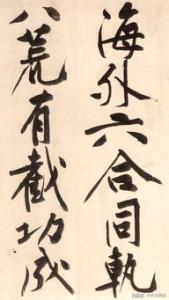 海外六合同執
八荒有截功成